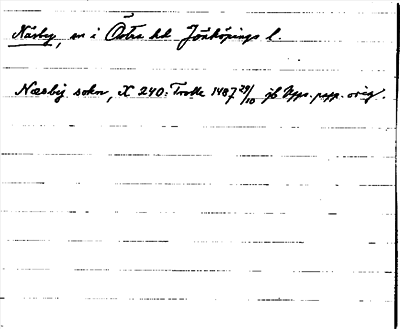 Näsby, sn i Östra hd Jönköpings l.
Næsby sokn, X 240: Trolle 1487 29/10 jb Upps. papp. orig.